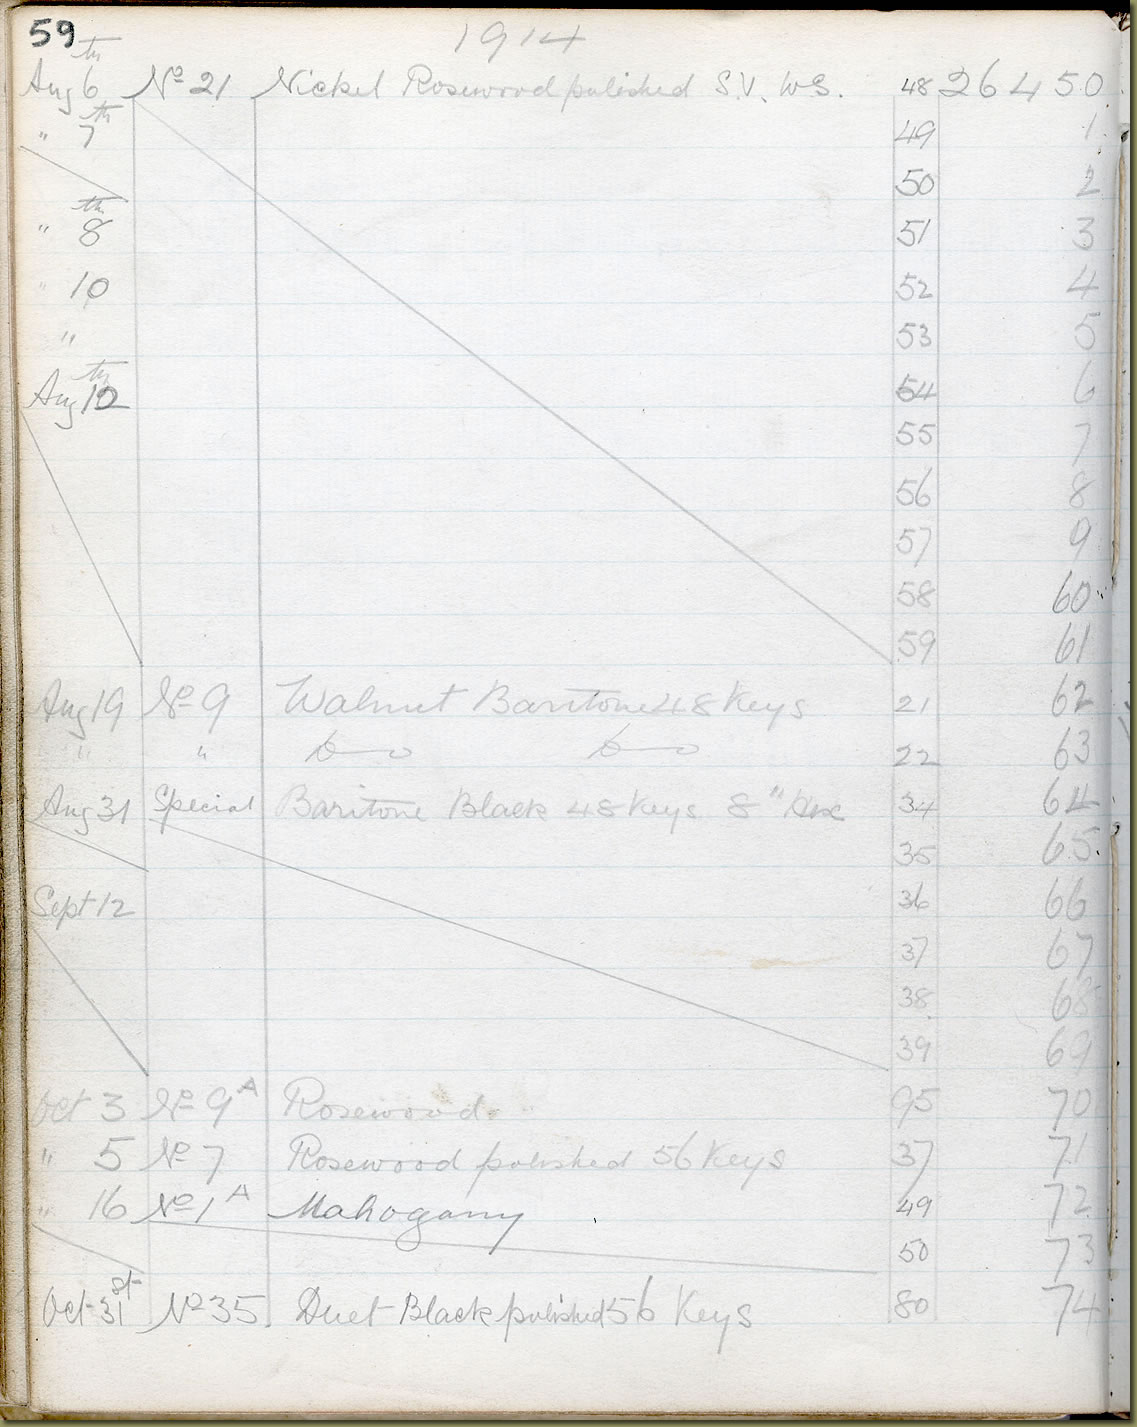 59
1914
Aug 6th No 21 Nickel Rosewood polished S.V. W.S. 48 26450
" 7th 49 1
50 2
" 8th 51 3
" 10 52 4
" 53 5
Aug 12th 54 6
55 7
56 8
57 9
58 60
59 61
Aug 19 No 9 Walnut Baritone 48 Keys 21 62
" " do do 22 63
Aug 31 Special Baritone Black 48 Keys 8" Hex 34 64
35 65
Sept 12 36 66
37 67
38 68
39 69
Oct 3 No 9A Rosewood 95 70
" 5 No 7 Rosewood polished 56 Keys 37 71
" 16 No 1A Mahogany 49 72
50 73
Oct 31st No 35 Duet Black polished 56 Keys 80 74